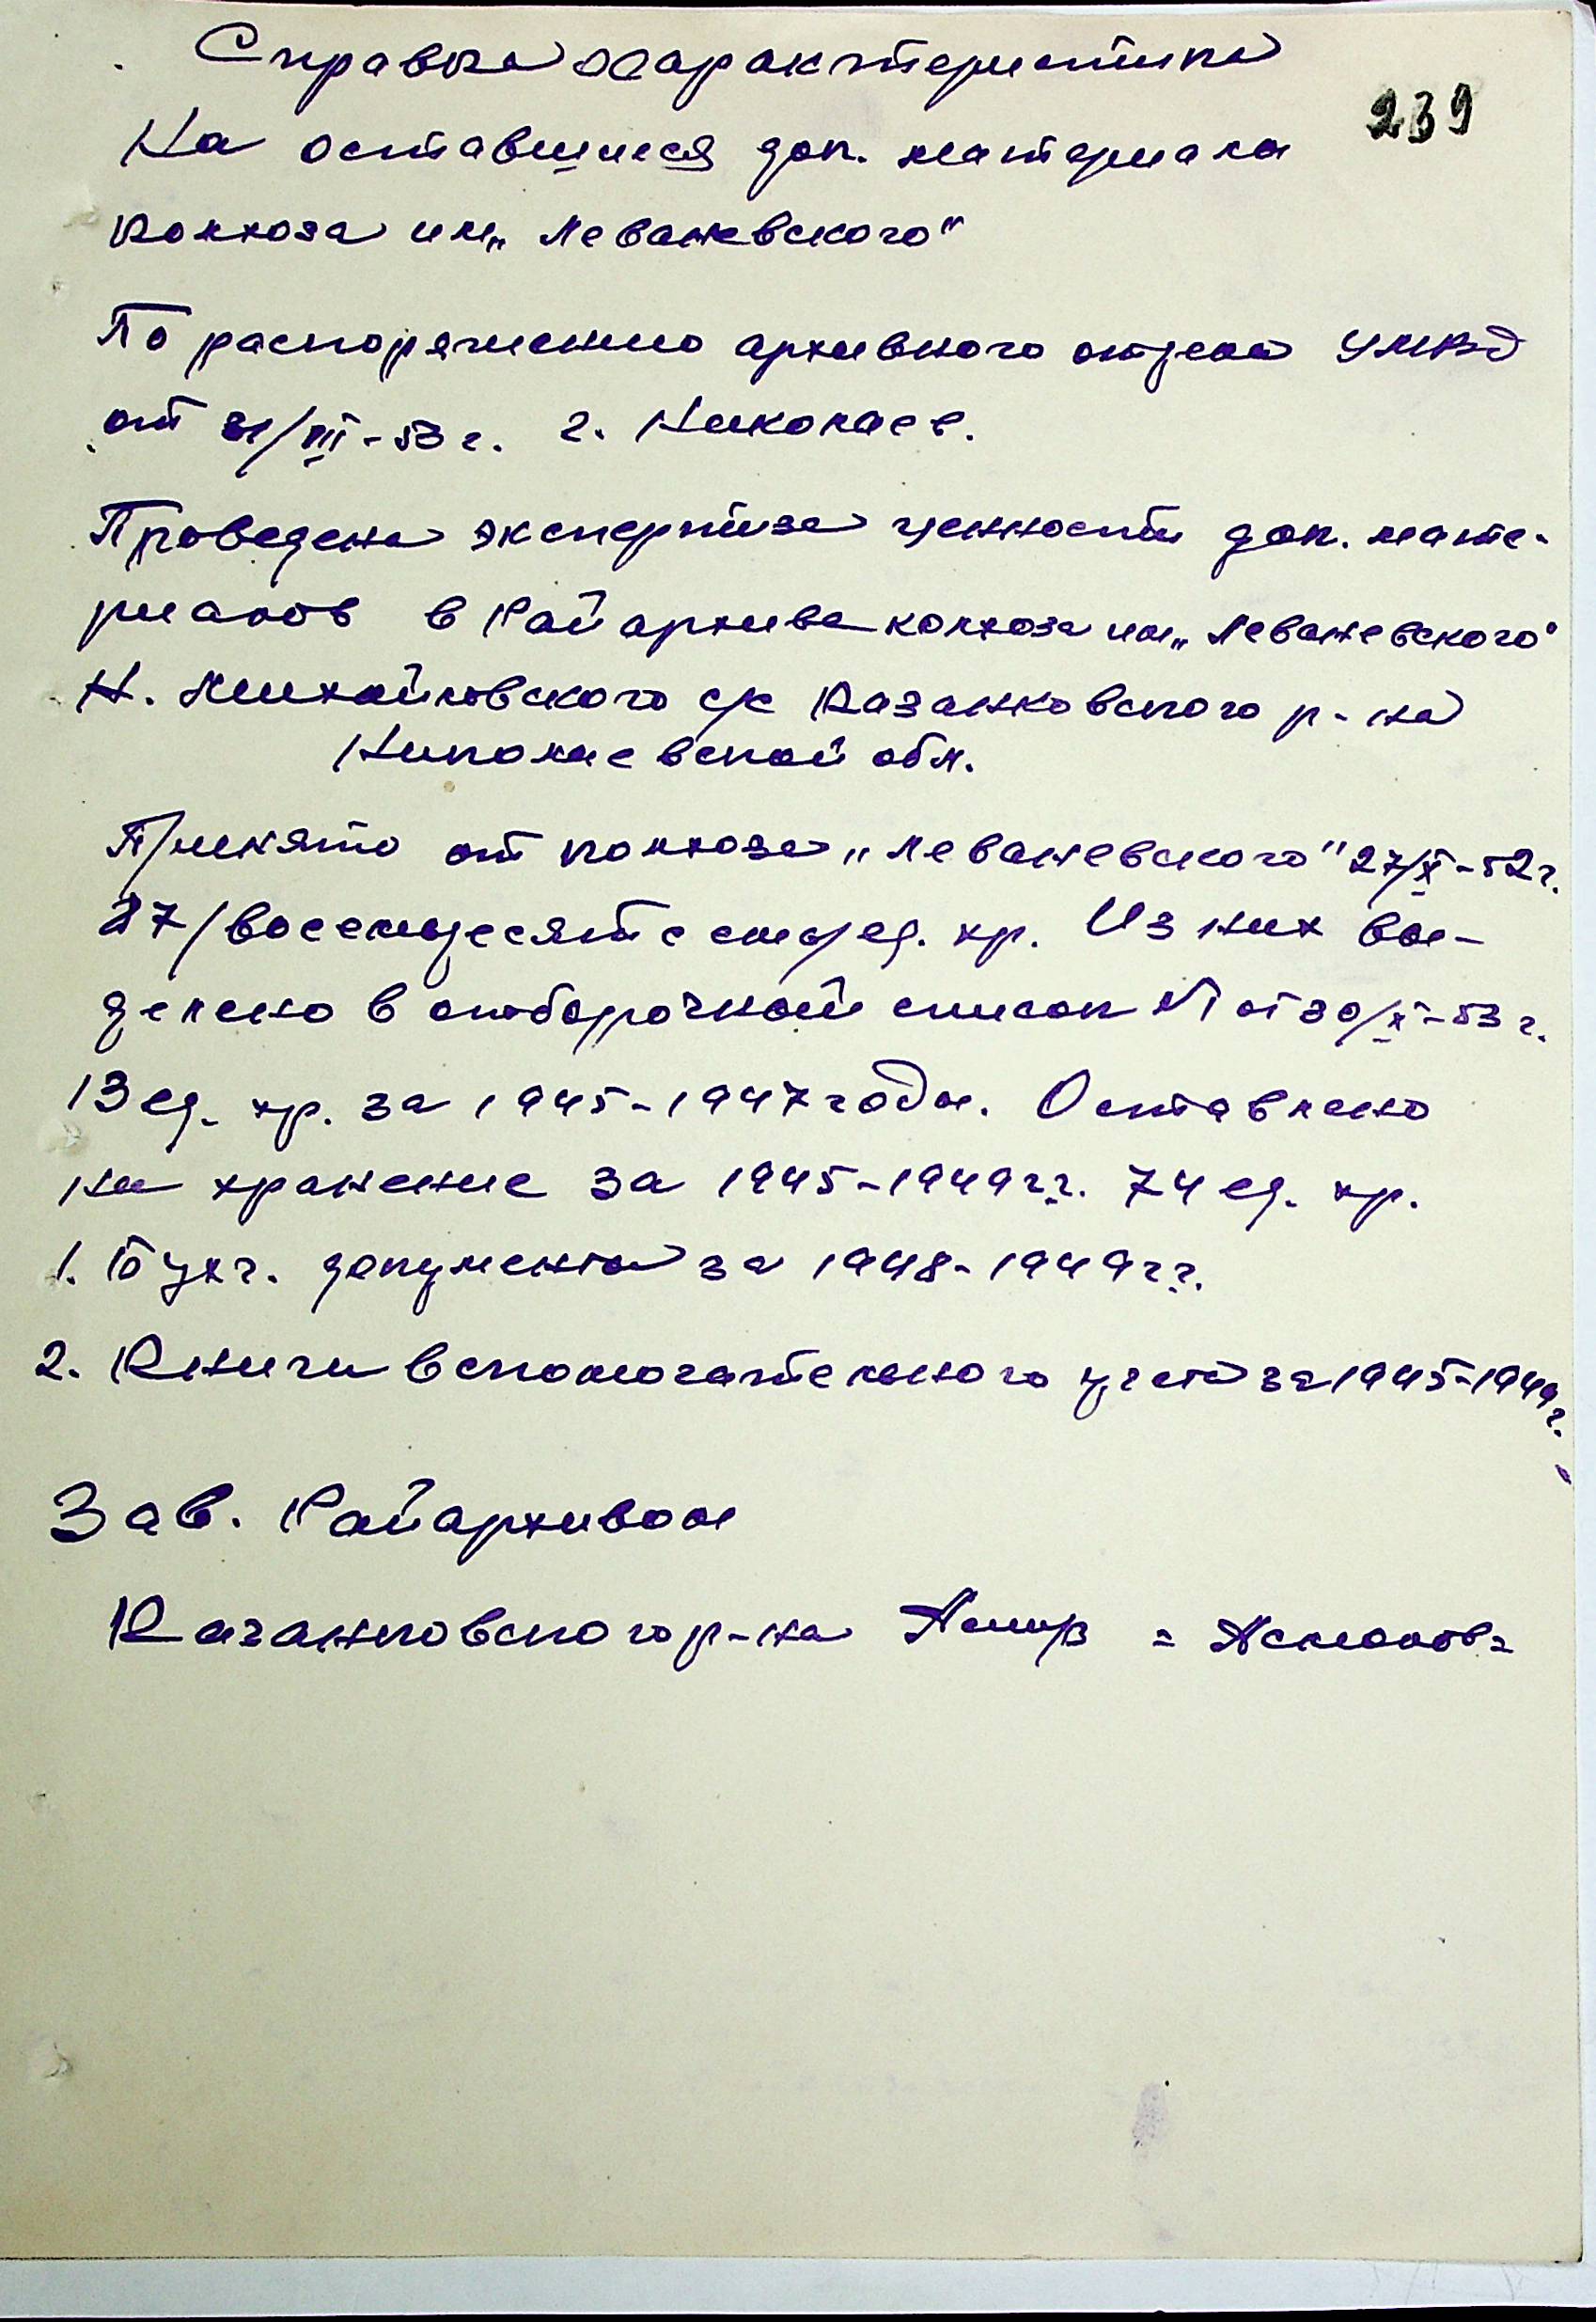 Справка характеристика
239
На оставшиеся док. материалы
колхоза им „Леваневского"
По распоряжению архивного отдела УМВД
от 31/III-53 г. г. Николаев.
Проведена экспертиза ценности док. мате-
риалов в Райархиве колхоза им „Леваневского"
Н. Михайловского с/с Казанковского р-на
Николаевской обл.
Принято от колхоза „Леваневского" 27/X-52 г.
87/восемьдесят семь/ед. хр. Из них вы-
делено в отборочный список №1 от 30/X-53 г.
13 ед. хр. за 1945-1947 годы. Оставлено
на хранение за 1945-1949 г.г. 74 ед. хр.
1. Бухг. документы за 1948-1949 г.г.
2. Книги вспомогательного учета за 1945-1949 г.
Зав. Райархивом
Казанковского р-на